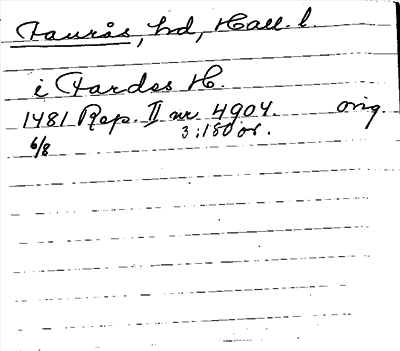 Faurås, hd, Hall. l.
i Fardos H.
1481 Rep. II nr 4904. orig.
6/8 3:180 ör.